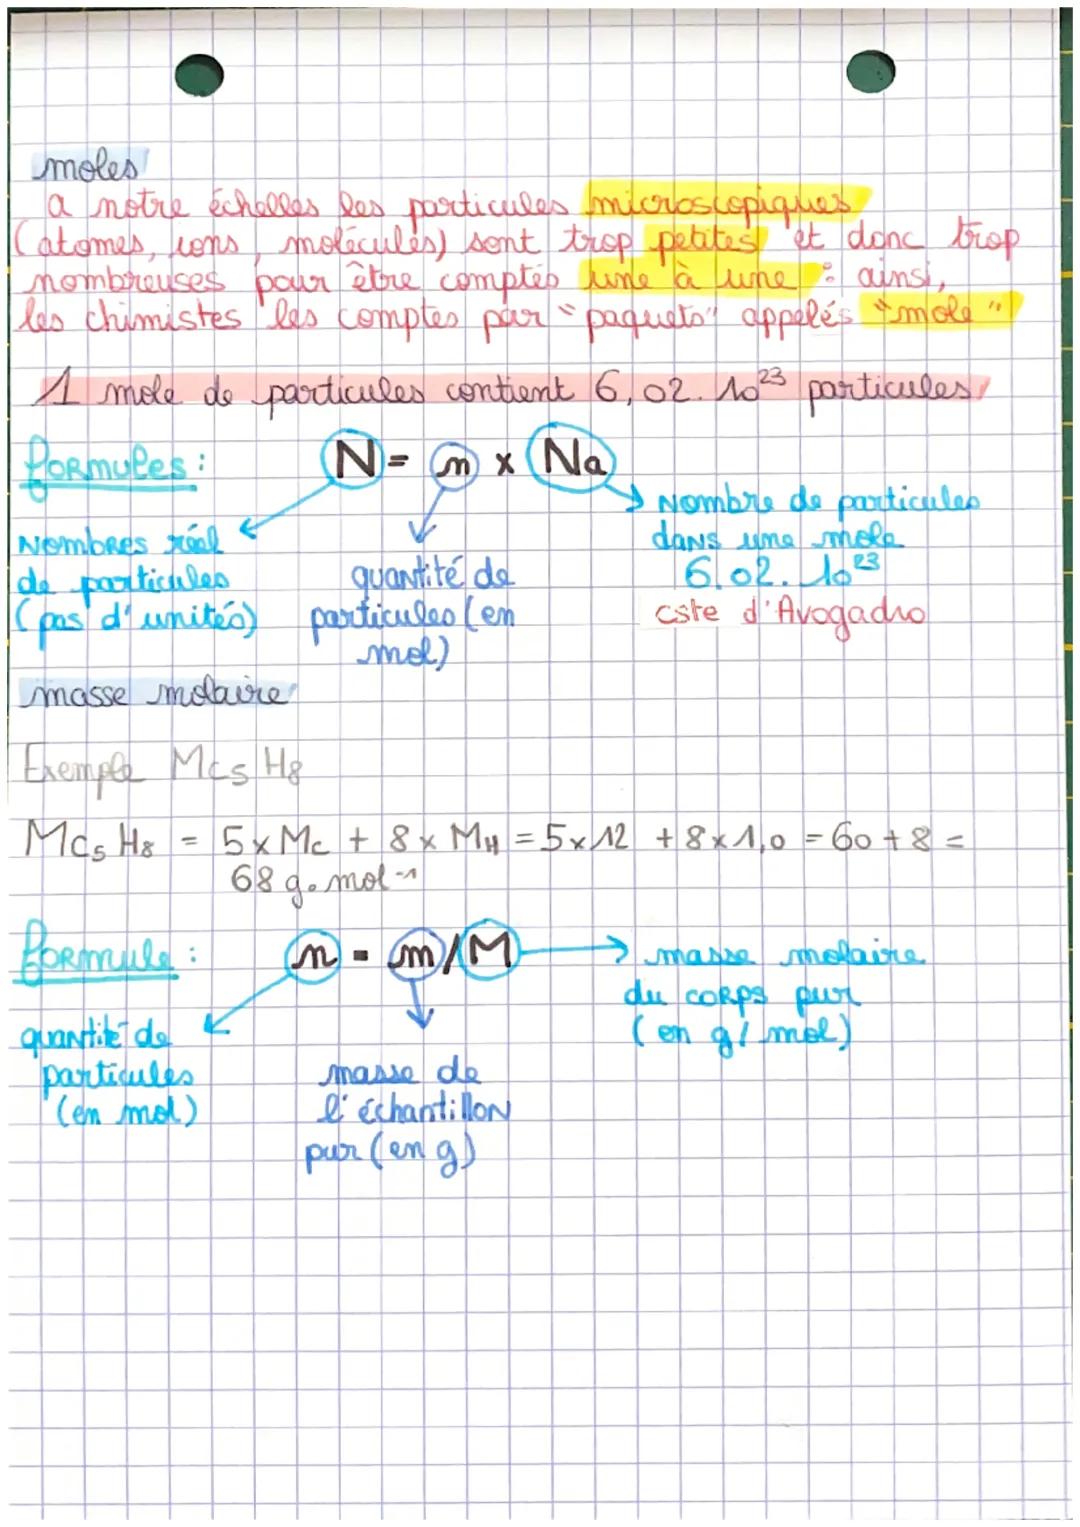 moles
a notre échelles les particules microscopiques
(atomes, ions, molécules) sont trop petites et donc trop
nombreuses pour être comptés une à une : ainsi,
les chimistes les comptes par "paquets" appelés "mole"
1 mole de particules contient 6,02.10²³ particules
formules :
N = n x Na
Nombres réel
de particules
(pas d'unités)
quantité de
particules (en
mol)
Nombre de particules
dans une mole
6,02.10²³
cste d'Avogadro
masse molaire
Exemple MC₅H₈
MC₅H₈ = 5xMc + 8x MH = 5x12 + 8x1,0 = 60 + 8 =
68 g.mol⁻¹
formule :
n = m/M
quantité de
particules
(en mol)
masse de
l'échantillon
pur (en g)
masse molaire
du corps pur
(en g/mol)